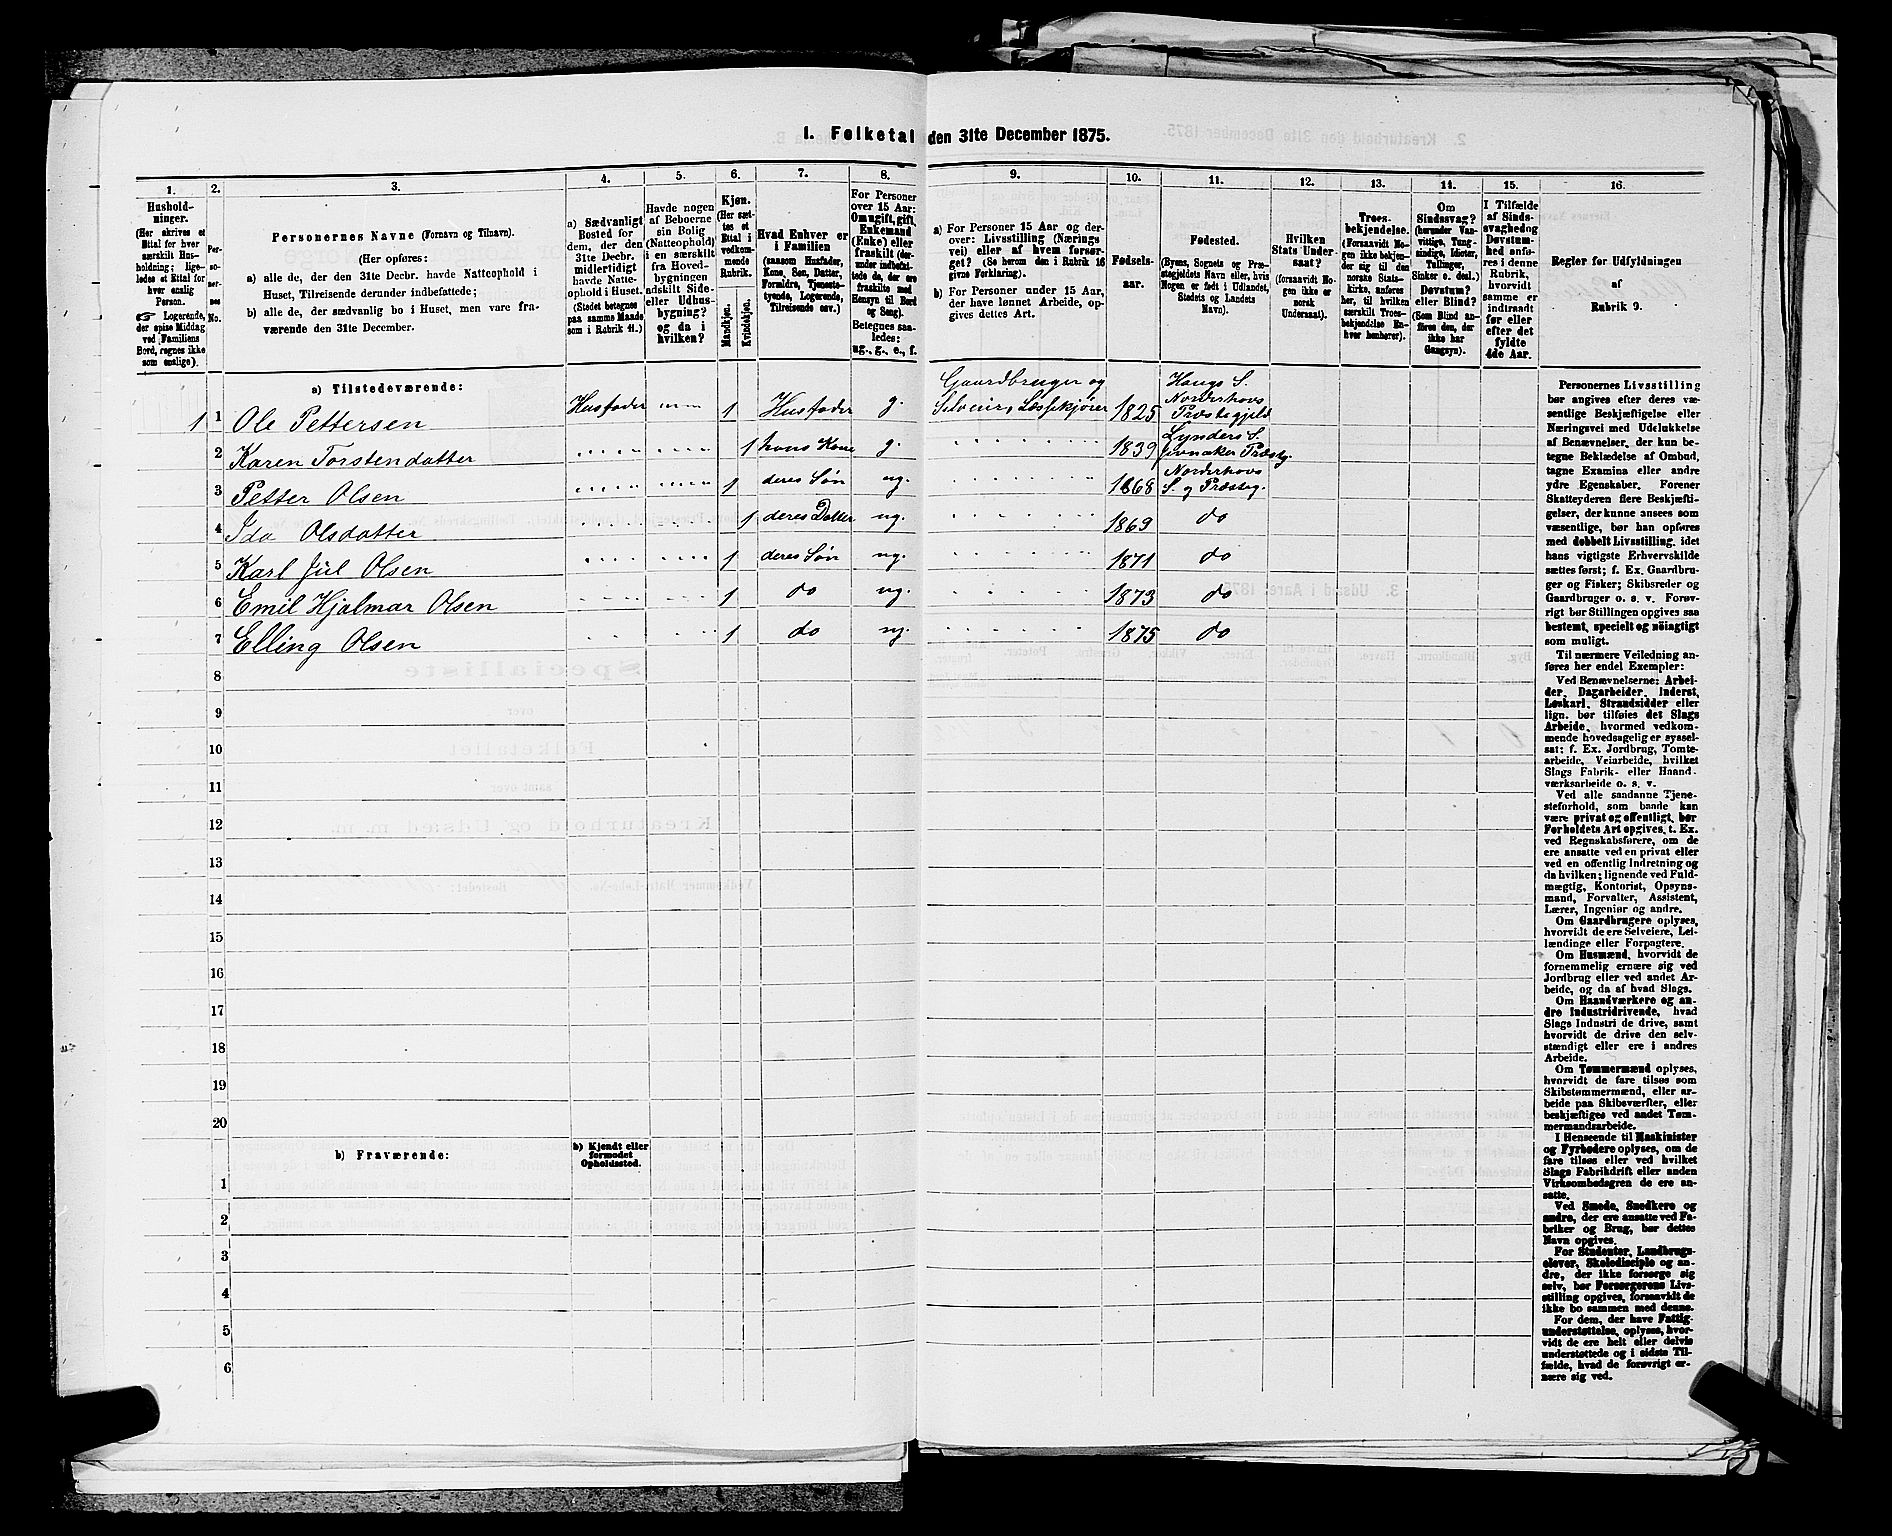 1. Folketal den 31te December 1875.
1.
2.
3.
4.
5.
6.
7.
8.
9.
10.
11.
12.
13.
14.
15.
16.
Hushold-
ninger.
(Her skrives et
Ettal for hver
særskilt Hus-
holdning; lige-
ledes et Ettal for
hver enslig
Person.
☞ Logerende,
der spise Middag
ved Familiens
Bord, regnes ikke
som enslige).
Per-
so-
ner-
nes
No.
Personernes Navne (Fornavn og Tilnavn).
(Her opføres:
a) alle de, der den 31te Decbr. havde Natteophold i
Huset, Tilreisende derunder indbefattede;
b) alle de, der sædvanlig bo i Huset, men vare fra-
værende den 31te December.
a) Sædvanligt
Bosted for
dem, der den
31te Decbr.
midlertidigt
havde Natte-
ophold i Huset.
(Stedet betegnes
paa samme Maade
som i Rubrik 11.)
Havde nogen
af Beboerne
sin Bolig
(Natteophold)
i en særskilt
fra Hoved-
bygningen
adskilt Side-
eller Udhus-
bygning?
og da i
hvilken?
Kjøn.
(Her sæt-
tes et
Ettal i
vedkom-
mende
Rubrik.
Mandkjøn.
Kvindekjøn.
Hvad Enhver er
i Familien
(saasom Husfader,
Kone, Søn, Datter,
Forældre, Tjeneste-
tyende, Logerende,
Tilreisende osv.)
For Personer
over 15 Aar:
Om ugift, gift,
Enkemand
(Enke) eller
fraskilt (der-
under indbefat-
tede de, der ere
fraskilte med
Hensyn til Bord
og Seng).
Betegnes saa-
ledes:
ug., g., e., f.
a) For Personer 15 Aar og der-
over: Livsstilling (Nærings
vei) eller af hvem forsør-
get? (Se herom den i Rubrik 16
givne Forklaring).
b) For Personer under 15 Aar,
der have lønnet Arbeide, op-
gives dettes Art.
Fødsels-
aar.
Fødested.
(Byens, Sognets og Præ-
stegjeldets Navn eller, hvis
Nogen er født i Udlandet,
Stedets og Landets
Navn).
Hvilken
Stats Under-
saat?
(forsaavidt No-
gen ikke er
norsk
Undersaat).
Troes-
bekjendelse.
(Forsaavidt No-
gen ikke bekjen-
der sig til den
norske Stats-
kirke, anføres
her, til hvilken
særskilt Troes-
bekjendelse En-
hver henhører).
Om
Sindssvag?
(herunder Van-
vittige, Tung-
sindige, Idioter,
Tullinger,
Sinker o. desl.)
Døvstum?
eller Blind?
(Som Blind an-
føres den, der
ikke har
Gangsyn).
I Tilfælde
af Sinds-
svaghed og
Døvstum-
hed anfø-
res i denne
Rubrik,
hvorvidt
samme er
indtraadt
før eller
efter det
fyldte
4de Aar.
Regler for Udfyldningen
af
Rubrik 9.
a) Tilstedeværende:
1 1 Ole Pettersen Husfader 1 Husfader g. Gaardbruger og Selveier, Læssekjører 1825 Haugs S. Norderhovs Præstegjeld
2 Karen Torstendatter 1 hans Kone g. 1839 Lynders S. Jevnaker Præstg.
3 Petter Olsen 1 deres Søn ug. 1868 Norderhovs S. og Præsteg.
4 Ida Olsdatter 1 deres Datter ug. 1869 do
5 Karl Jül Olsen 1 deres Søn ug. 1871 do
6 Emil Hjalmar Olsen 1 do ug. 1873 do
7 Elling Olsen 1 do ug. 1875 do
8
9
10
11
12
13
14
15
16
17
18
19
20
b) Fraværende:
b) Kjendt eller
formodet
Opholdssted.
1
2
3
4
5
6
Personernes Livsstilling
bør angives efter deres væ-
sentlige Beskjæftigelse eller
Næringsvei med Udelukkelse
af Benævnelser, der kun be-
tegne Beklædelse af Ombud,
tagne Examina eller andre
ydre Egenskaber. Forener
Skatteyderen flere Beskjæfti-
gelser, der kunne ansees som
væsentlige, bør han opføres
med dobbelt Livsstilling, idet
hans vigtigste Erhvervskilde
sættes først; f. Ex. Gaardbru-
ger og Fisker; Skibsreder og
Gaardbruger o. s. v. Forøv-
rigt bør Stillingen opgives saa
bestemt, specielt og nøiagtigt
som muligt.
Til nærmere Veiledning an-
føres her endel Exempler:
Ved Benævnelserne: Arbei-
der, Dagarbeider, Inderst,
Løskarl, Strandsidder eller
lign. bør tilføies det Slags
Arbeide, hvormed vedkom-
mende hovedsagelig er syssel-
sat; f. Ex. Jordbrug, Tomte-
arbeide, Veiarbeide, hvilket
Slags Fabrik- eller Haand-
værksarbeide o. s. v.
Ved alle saadanne Tjene-
steforhold, som baade kan
være privat og offentligt, bør
Forholdets Art opgives, t. Ex.
ved Regnskabsførere, om de
ere ansatte ved en privat eller
ved en offentlig Indretning og
da hvilken; lignende ved Fuld-
mægtig, Kontorist, Opsyns-
mand, Forvalter, Assistent,
Lærer, Ingeniør og andre.
Om Gaardbrugere oplyses,
hvorvidt de ere Selveiere, Lei-
lændinge eller Forpagtere.
Om Husmænd, hvorvidt de
fornemmelig ernære sig ved
Jordbrug eller ved andet Ar-
beide, og da af hvad Slags.
Om Haandværkere og an-
dre Industridrivende, hvad
Slags Industri de drive, samt
hvorvidt de drive den selv-
stændigt eller ere i andres
Arbeide.
Om Tømmermænd oplyses,
hvorvidt de fare tilsøs som
Skibstømmermænd, eller ar-
beide paa Skibsværfter, eller
beskjæftiges ved andet Tøm-
mermandsarbeide.
I Henseende til Maskinister
og Fyrbødere oplyses, om de
fare tilsøs eller ved hvilket
Slags Fabrikdrift eller anden
Virksombedsgren de ere an-
satte.
Ved Smede, Snedkere og
andre, der ere ansatte ved Fa-
briker og Brug, bør dettes
Navn opgives.
For Studenter, Landbrugs-
elever, Skoledisciple og an-
dre, der ikke forsørge sig
selv, bør Forsørgerens Livs-
stilling opgives, forsaavidt de
ikke bo sammen med denne.
For dem, der have Fattig-
understøttelse, oplyses, hvor-
vidt de ere helt eller delvis
understøttede og i sidste Til-
fælde, hvad de forøvrigt er-
nære sig ved.